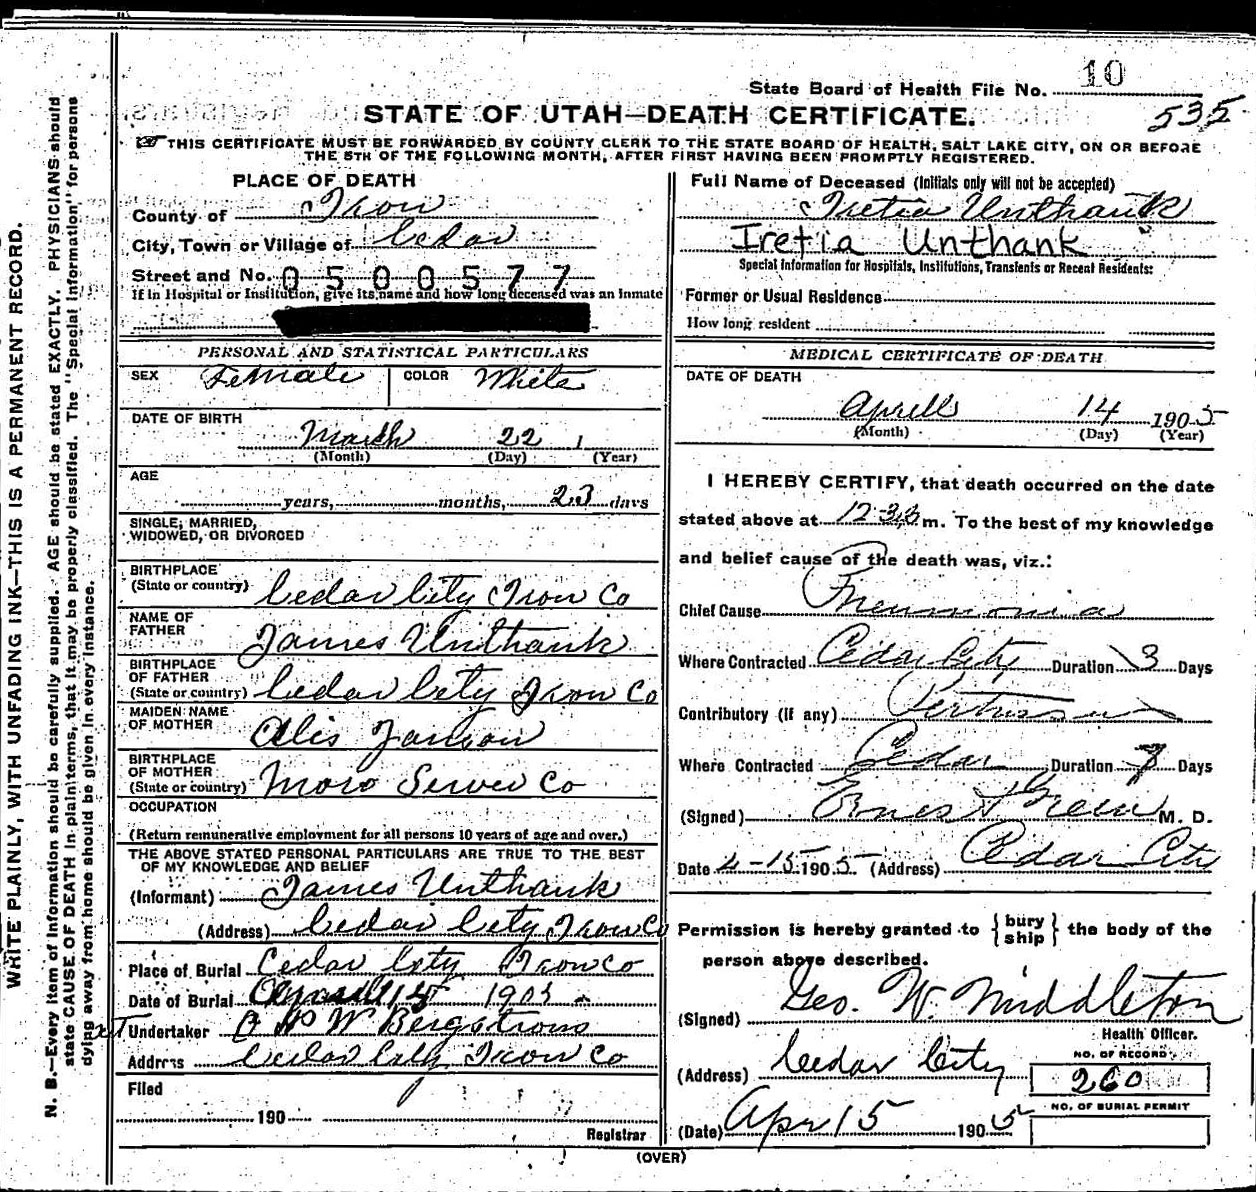 State Board of Health File No. 10
535
STATE OF UTAH—DEATH CERTIFICATE.
THIS CERTIFICATE MUST BE FORWARDED BY COUNTY CLERK TO THE STATE BOARD OF HEALTH, SALT LAKE CITY, ON OR BEFORE
THE 5TH OF THE FOLLOWING MONTH, AFTER FIRST HAVING BEEN PROMPTLY REGISTERED.
WRITE PLAINLY, WITH UNFADING INK—THIS IS A PERMANENT RECORD.
N. B.—Every item of information should be carefully supplied. AGE should be stated EXACTLY. PHYSICIANS should
state CAUSE OF DEATH in plain terms, that it may be properly classified. The "Special Information" for persons
dying away from home should be given in every instance.
PLACE OF DEATH
County of Iron
City, Town or Village of Cedar
Street and No. 0500577
If in Hospital or Institution, give its name and how long deceased was an inmate
PERSONAL AND STATISTICAL PARTICULARS
SEX Female COLOR White
DATE OF BIRTH
March 22 1
(Month) (Day) (Year)
AGE
years, months, 23 days
SINGLE, MARRIED,
WIDOWED, OR DIVORCED
BIRTHPLACE
(State or country) Cedar City Iron Co
NAME OF
FATHER James Unthank
BIRTHPLACE
OF FATHER
(State or country) Cedar City Iron Co
MAIDEN NAME
OF MOTHER Alis
BIRTHPLACE
OF MOTHER
(State or country) Moro Server Co
OCCUPATION
(Return remunerative employment for all persons 10 years of age and over.)
THE ABOVE STATED PERSONAL PARTICULARS ARE TRUE TO THE BEST
OF MY KNOWLEDGE AND BELIEF
(Informant) James Unthank
(Address) Cedar City Iron Co
Place of Burial Cedar City Iron Co
Date of Burial 15 1905
Undertaker W Bergstrom
Address Cedar City Iron Co
Filed
190
Registrar
Full Name of Deceased (Initials only will not be accepted)
Iretia Unthank
Iretia Unthank
Special Information for Hospitals, Institutions, Transients or Recent Residents:
Former or Usual Residence
How long resident
MEDICAL CERTIFICATE OF DEATH
DATE OF DEATH
Aprell 14 1905
(Month) (Day) (Year)
I HEREBY CERTIFY, that death occurred on the date
stated above at 12 33 m. To the best of my knowledge
and belief cause of the death was, viz.:
Chief Cause Pneumonia
Where Contracted Cedar City Duration 3 Days
Contributory (if any) Pertussis
Where Contracted Cedar Duration 7 Days
(Signed) Green M. D.
Date 4-15-1905. (Address) Cedar City
Permission is hereby granted to { bury ship } the body of the
person above described.
(Signed) Geo. W. Middleton
Health Officer.
(Address) Cedar City
NO. OF RECORD
260
NO. OF BURIAL PERMIT
(Date) Apr 15 1905
(OVER)